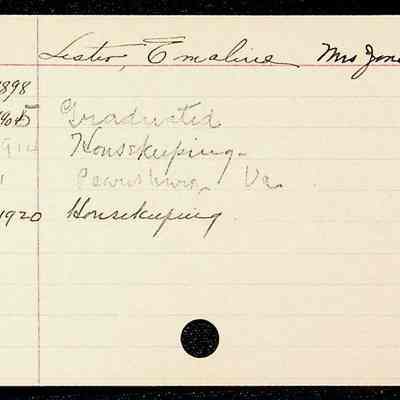 Lester, Emaline Mrs Jone
1898
1905 Graduated
191 Housekeeping.
Pearisburg Va.
1920 Housekeeping.